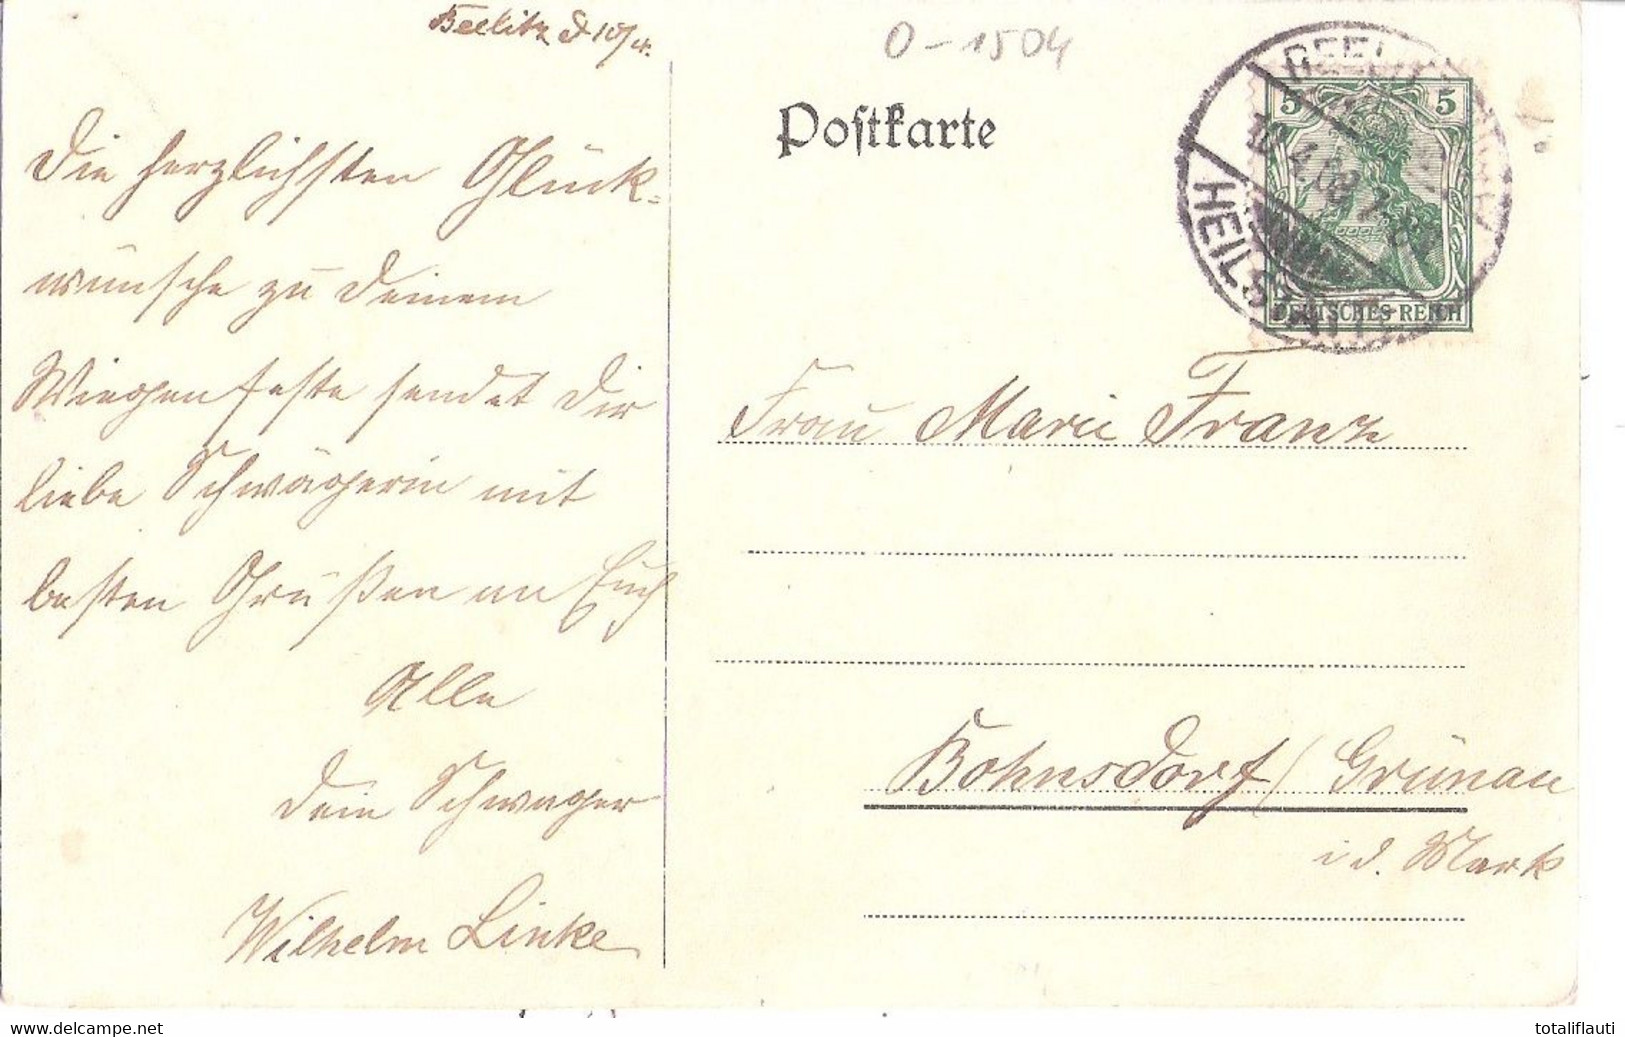 Beelitz d 10/4.
O-1504
Die herzlichsten Glück-
wünsche zu Deinem
Wiegenfeste sendet Dir
liebe Schwägerin mit
besten Grüßen an Euch
Alle
Dein Schwager
Wilhelm Linke
Postkarte
5 5
DEUTSCHES REICH
HEILSTÄTTE
Frau Marie Franz
Bohnsdorf / Grünau
i d. Mark
totaliflauti
www.delcampe.net